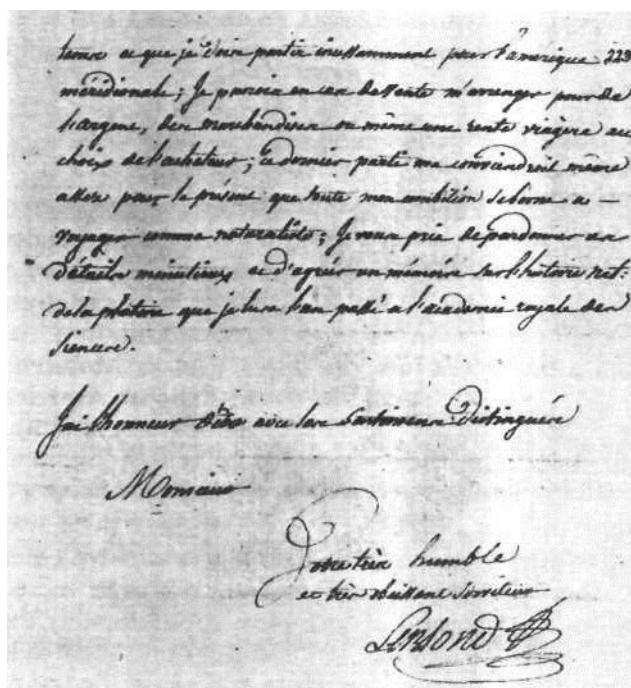 et que je dois partir incessamment pour l'amérique 223
méridionale; Je pourois en cas de vente m'arranger pour de
l'argent, des marchandises ou même une rente viagère au
choix de l'acheteur; ce dernier parti me conviendroit même
assez pour le présent que toute mon ambition se borne a —
voyager comme naturaliste; Je vous prie de pardonner ces
détails minutieux et d'agréer un mémoire sur l'histoire nat:
de la platine que je lus l'an passé a l'academie royale des
siences.
J'ai l'honneur d'etre avec les sentimens distingués
Monsieur
Votre très humble
et très obéissant serviteur